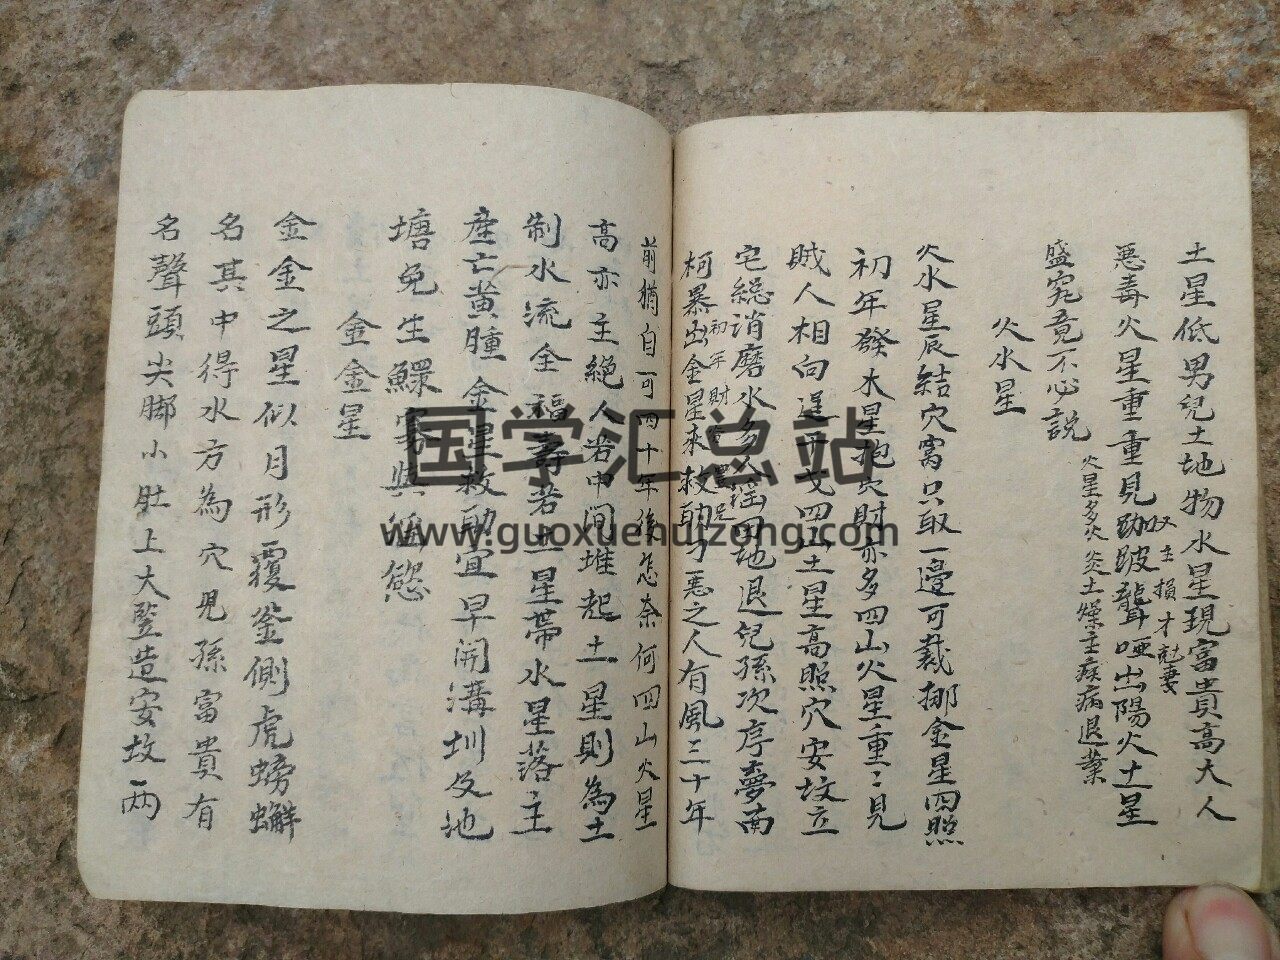 土星低男兒土地物水星現富貴高大人
又主損才尅妻
惡毒火星重重見跏跛聾啞出陽火土星
盛究竟不必說
火星多災炎土燥主疾病退業
火水星
火水星辰結穴窩只取一邉可裁挪金星四照
初年發木星抱穴財亦多四山火星重〻見
賊人相向逞干戈四山土星高照穴安坟立
宅総消磨水多人瑶田地退兒孫次序夢南
初年財
柯暴出金星來救助了惡之人有風三十年
前猶自可四十年後怎奈何四山火星
高亦主絶人若中間堆起土星則為土
制水流全福壽若土星帶水星落主
産亡黄腫金星救助宜早開溝圳及地
塘免生鰥寡與慾
金金星
金金之星似月形覆釜側虎螃蠏
名其中得水方為穴児孫富貴有
名聲頭尖脚小肚上大竪造安坟一两
国学汇总站
www.guoxuehuizong.com